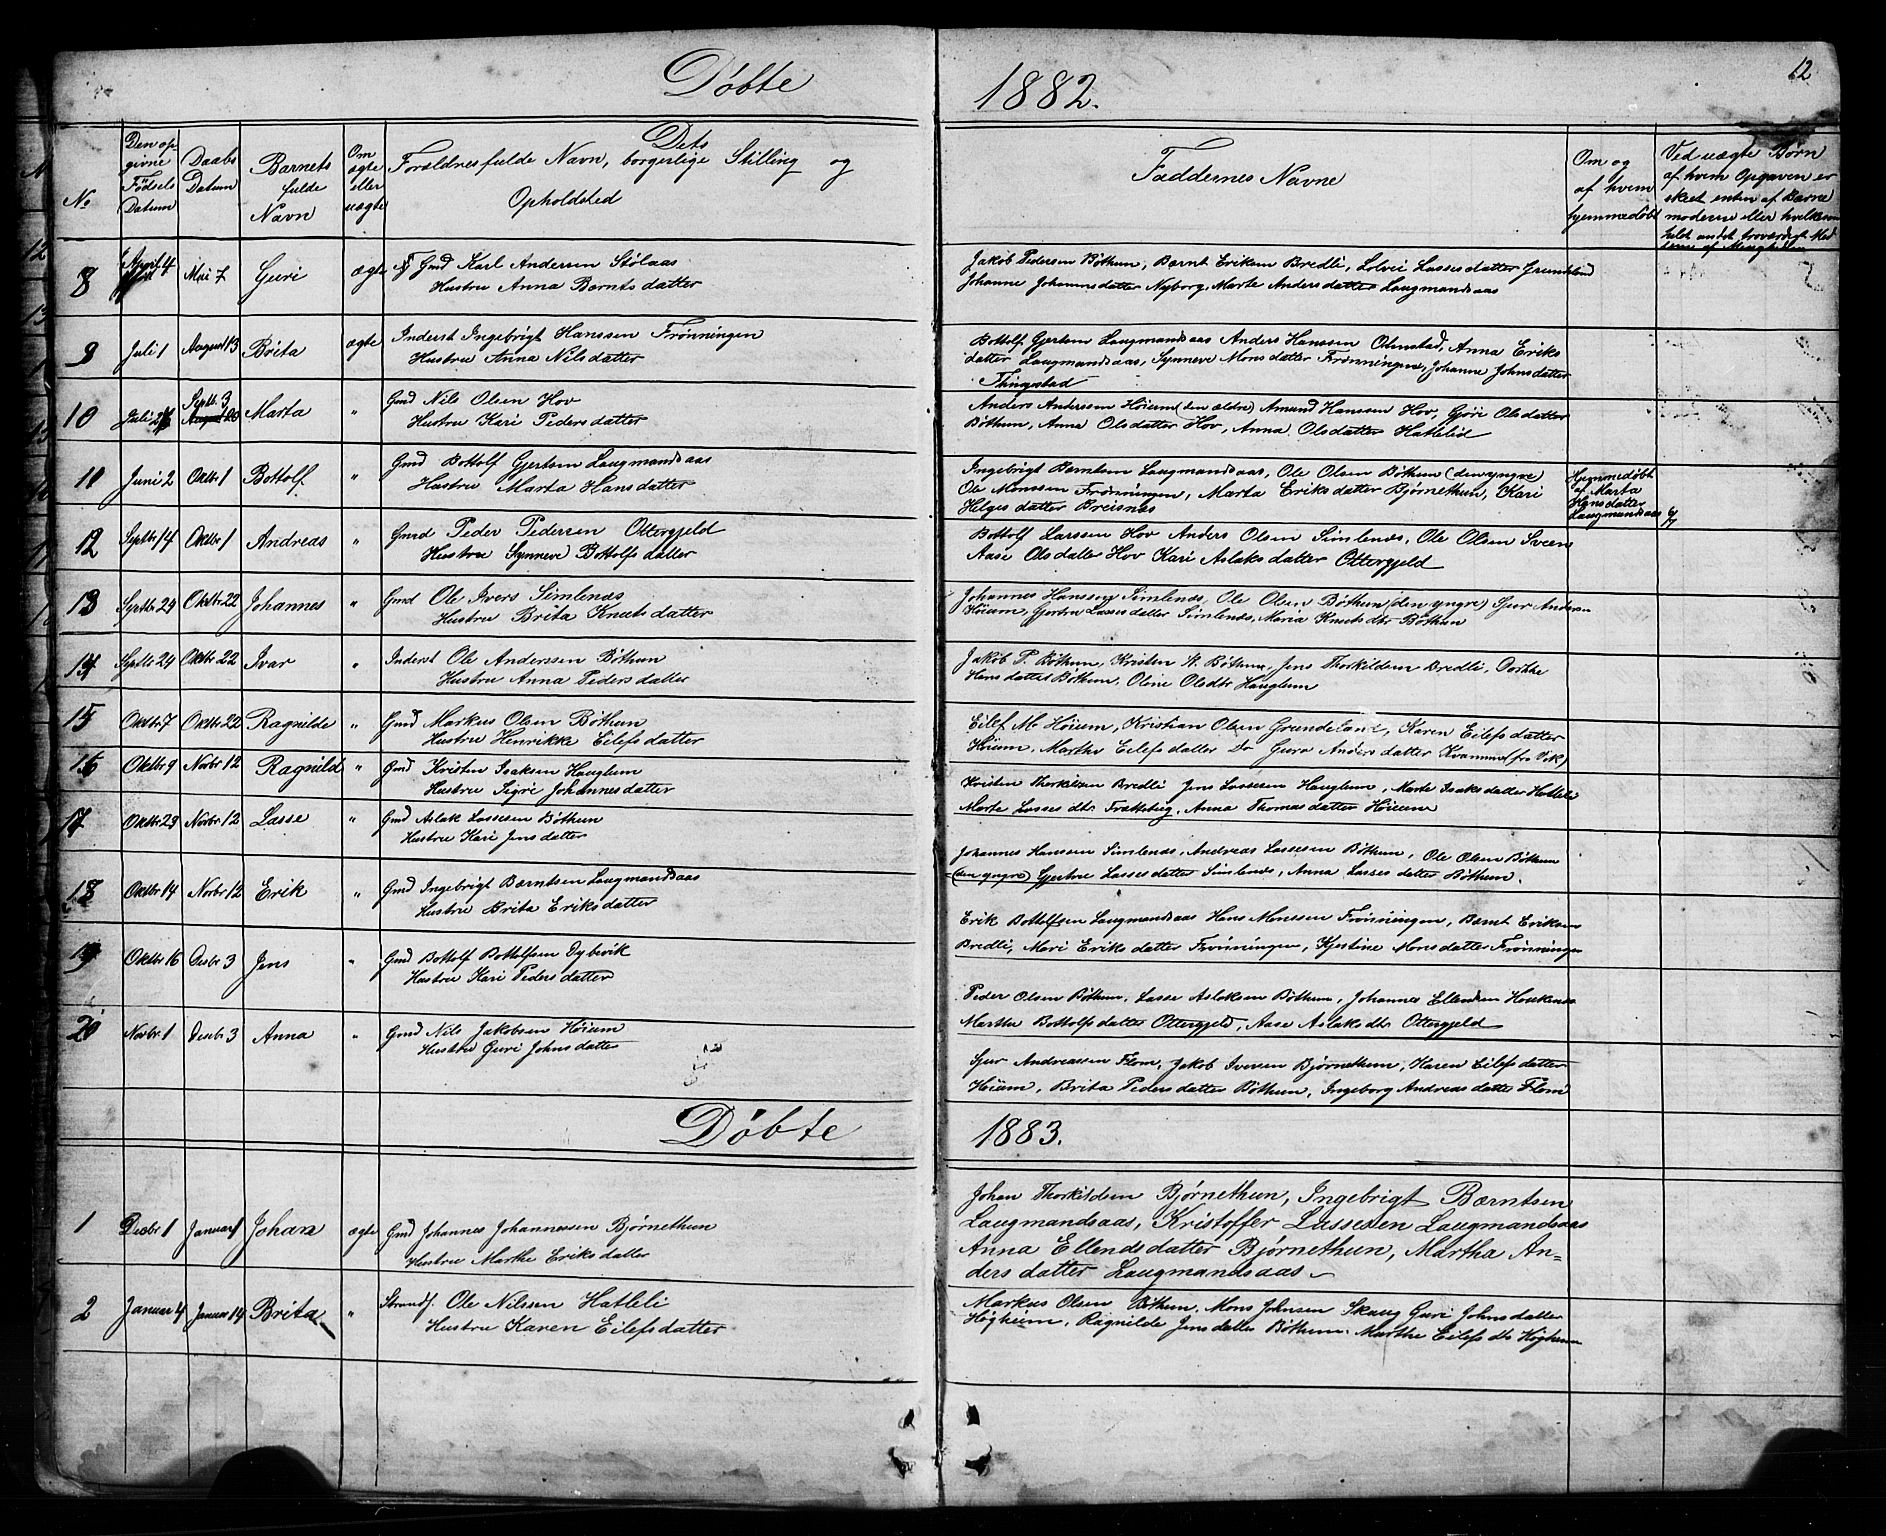 Døbte
1882.
12
No
Den op
givne
Fødsels
Datum
Daabs
Datum
Barnets
fulde
Navn
Om
ægte
eller
uægte
Dets
Forældres fulde Navn, borgerlige Stilling og
Opholdsted
Faddernes Navne
Om og
af hvem
hjemmedøbt
Ved uægte Børn
af hvem Opgaven er
skeet enten af Barne
moderen eller hvilkesom
helst andet troværdigt Med
8 April 4 Mai 7 Guri ægte Gmd Karl Andersen Stølaas
Hustru Anna Berntsdatter
Jakob Pedersen Bøthun, Bernt Eriksen Bredli, Lolvei Lassesdatter Grundeland
Johanne Johannsdatter Nyborg, Marte Andersdatter Laugmandsaas
9 Juli 1 August 13 Brita ægte Inderst Ingebrigt Hanssen Frønningen
Hustru Anna Nilsdatter
Bottolf Gjertsen Laugmandsaas Anders Hanssen Olmstad, Anna Eriks
datter Laugmandsaas, Synneve Monsdatter Frønningen, Johanne Johnsdatter
Thingstad
10 Juli 26 Septb. 3 August 20 Marta " Gmd Nils Olsen Hov
Hustru Kari Pedersdatter
Anders Anderssen Høium (den ældre) Amund Hanssen Hov, Gjøri Olsdatter
Bøthun, Anne Olsdatter Hov, Anna Olsdatter Hatlelid
11 Juni 2 Oktbr 1 Bottolf " Gmd Bottolf Gjertsen Laugmandsaas
Hustru Marta Hansdatter
Ingebrigt Berntsen Laugmandsaas, Ole Olsen Bøthun (den yngre)
Ole Monssen Frønningen, Marta Eriksdatter Bjørnethun, Kari
Helgesdatter Breisnes
Hjemmedøbt
af Marta
Hansdatter
Laugmandsaas 6/7
12 Septbr 14 Oktbr 1 Andreas " Gmd Peder Pedersen Ottergjeld
Hustru Synneve Bottolfsdatter
Bottolf Larssen Hov Anders Olsen Simlenæs, Ole Olsen Sveen
Aase Olsdatter Hov Kari Aslaksdatter Ottergjeld
13 Septbr 29 Oktbr 22 Johannes " Gmd Ole Ivers Simlenæs
Hustru Brita Knutsdatter
Johannes Hanssen Simlenæs, Ole Olsen Bøthun (den yngre) Sjur Andersen
Høium, Gjertru Lassesdatter Simlenæs, Maria Knutsdtr Bøthun
14 Septbr 24 Oktbr 22 Ivar " Inderst Ole Anderssen Bøthun
Hustru Anna Pedersdatter
Jakob P. Bøthun, Kristen K. Bøthun, Jens Thorkildsen Bredli, Dorthe
Hansdatter Bøthun, Oline Olsdtr Hauglum
15 Oktbr 7 Oktbr 22 Ragnilde " Gmd Markus Olsen Bøthun
Hustru Henrikke Eilefsdatter
Eilef M Høium, Kristian Olsen Grundeland, Karen Eilefsdatter
Høium, Marthe Eilefsdatter Do Guro Andersdatter Kvamme (fra Vik)
16 Oktbr 9 Novbr 12 Ragnild " Gmd Kristen Isaksen Hauglum
Hustru Sigri Johannesdatter
Kristen Thorkilsen Bredli Jens Lassesen Hauglum, Marte Isaksdatter Hatleli
Marte Lassesdtr Fretteberg, Anna Thomasdatter Høium
17 Oktbr 29 Novbr 12 Lasse " Gmd Aslak Lassesen Bøthun
Hustru Kari Jensdatter
Johannes Hanssen Simlenæs, Andreas Lassesen Bøthun, Ole Olsen Bøthun
(den yngre) Gjertrue Lassesdatter Simlenæs, Anna Lassesdatter Bøthun.
18 Oktbr 14 Novbr 12 Erik " Gmd Ingebrigt Berntsen Laugmandsaas
Hustru Brita Eriksdatter
Erik Bottolfsen Laugmandsaas Hans Monssen Frønningen, Bernt Eriksen
Bredli, Mari Eriksdatter Frønningen, Kjestine Monsdatter Frønningen
19 Oktbr 16 Desbr 3 Jens " Gmd Bottolf Bottolfsen Dybevik
Hustru Kari Pedersdatter
Peder Olsen Bøthun, Lasse Aslaksen Bøthun, Johannes Ellendsen Haukenæs
Martha Bottolfsdatter Ottergjeld, Aase Aslaksdtr Ottergjeld
20 Novbr 1 Desbr 3 Anna " Gmd Nils Jakobsen Høium
Hustru Guri Johnsdatter
Sjur Andreassen Flom, Jakob Iversen Bjørnethun, Karen Eilefsdatter
Høium, Brita Pedersdatter Bøthun, Ingeborg Andreasdatter Flom
Døbte
1883.
1 Desbr 1 Januar 1 Johan ægte Gmd Johannes Johannessen Bjørnethun
Hustru Marthe Eriksdatter
Johan Thorkildsen Bjørnethun, Ingebrigt Bærntsen
Laugmandsaas, Kristoffer Lassesen Laugmandsaas
Anna Ellendsdatter Bjørnethun, Martha An-
dersdatter Laugmandsaas
2 Januar 4 Januar 14 Brita " Strandf. Ole Nilssen Hatleli
Hustru Karen Eilefsdatter
Markus Olsen Bøthun, Mons Johnsen Skaug Guri Johnsdatter
Høgheim, Ragnilde Jensdatter Bøthun, Marthe Eilefsdtr Høgheim